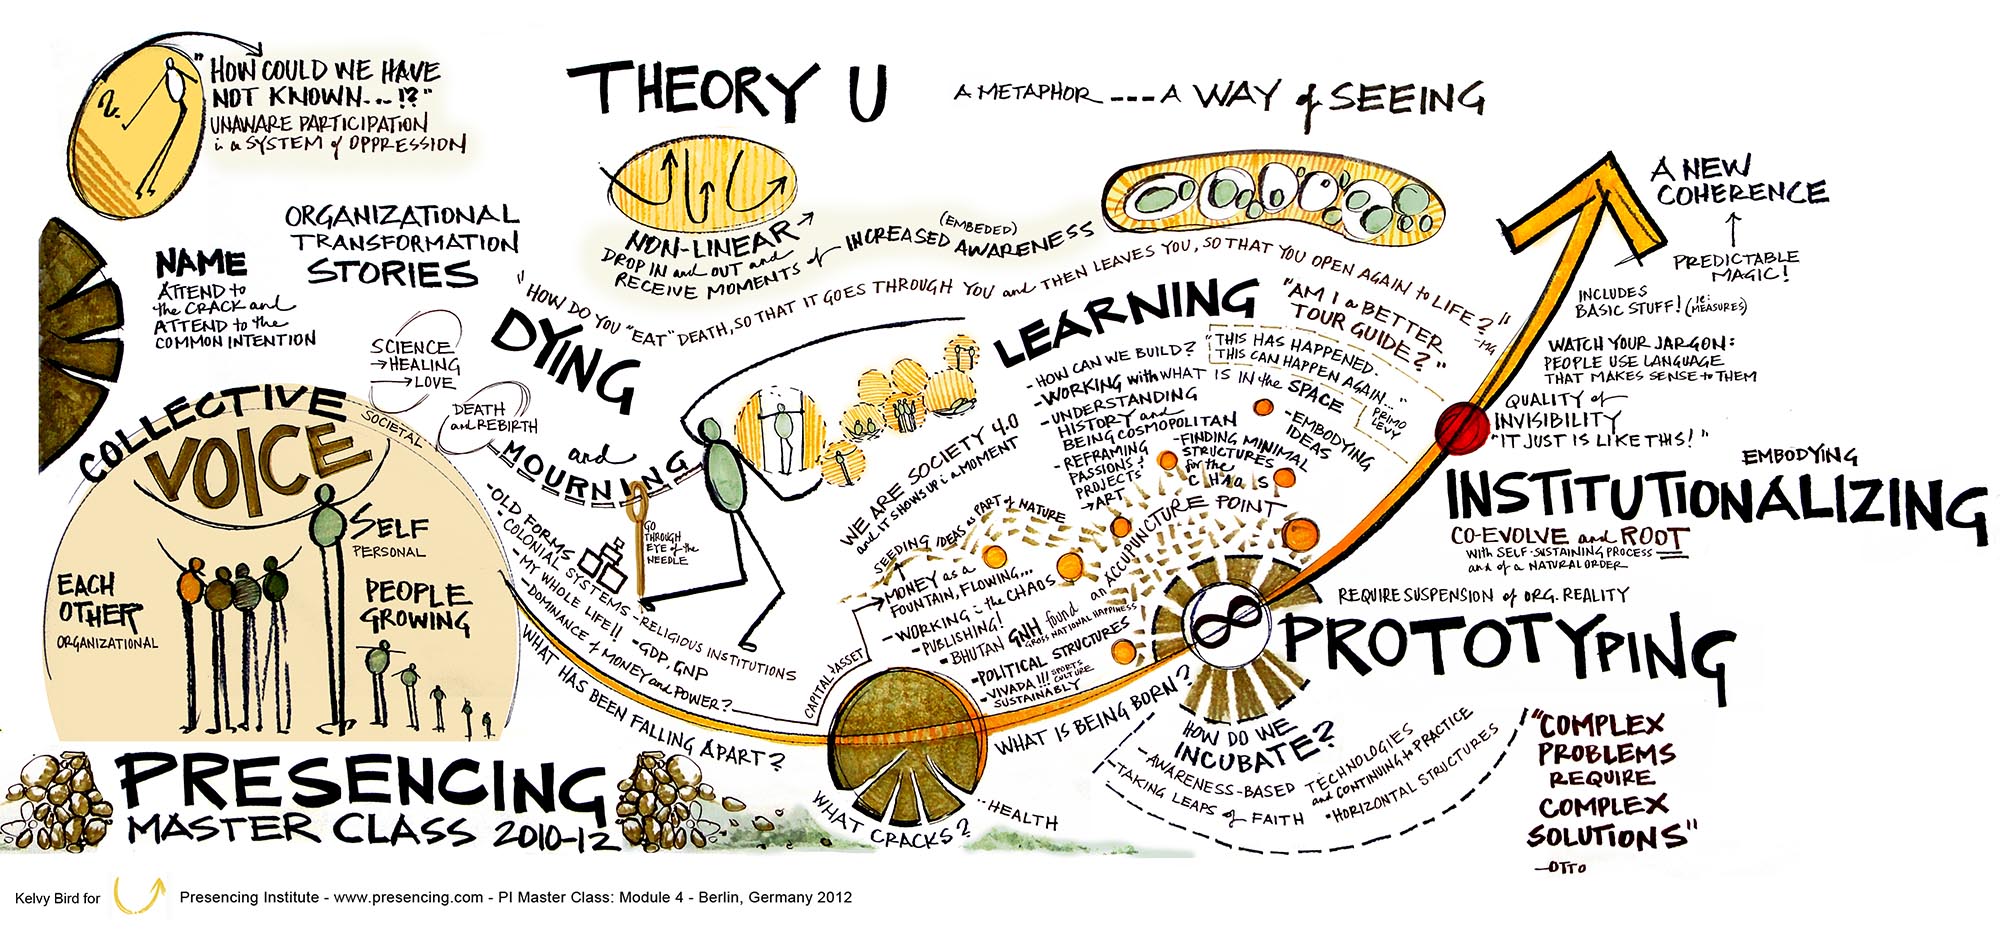 "HOW COULD WE HAVE
NOT KNOWN...!?"
UNAWARE PARTICIPATION
in a SYSTEM of OPPRESSION
THEORY U
A METAPHOR --- A WAY of SEEING
NAME
ATTEND to
the CRACK and
ATTEND to the
COMMON INTENTION
ORGANIZATIONAL
TRANSFORMATION
STORIES
SCIENCE
→HEALING
→LOVE
DEATH
and REBIRTH
NON-LINEAR
DROP IN and OUT and
RECEIVE MOMENTS of INCREASED AWARENESS
(EMBEDED)
"HOW DO YOU "EAT" DEATH, SO THAT IT GOES THROUGH YOU and THEN LEAVES YOU, SO THAT YOU OPEN AGAIN to LIFE?"
-MG
COLLECTIVE
VOICE
SOCIETAL
SELF
PERSONAL
EACH
OTHER
ORGANIZATIONAL
PEOPLE
GROWING
PRESENCING
MASTER CLASS 2010-12
DYING
and
MOURNING
GO
THROUGH
EYE of the
NEEDLE
-OLD FORMS
"COLONIAL SYSTEMS
-MY WHOLE LIFE!!
-DOMINANCE of MONEY and POWER?
-RELIGIOUS INSTITUTIONS
-GDP, GNP
WHAT HAS BEEN FALLING APART?
CAPITAL→ASSET
WHAT CRACKS?
--HEALTH
WE ARE SOCIETY 4.0
and IT SHOWS UP in A MOMENT
LEARNING
"AM I a BETTER
TOUR GUIDE?"
-HOW CAN WE BUILD?
-WORKING with WHAT IS IN the SPACE
-UNDERSTANDING
HISTORY and
BEING COSMOPOLITAN
-REFRAMING
PASSIONS;
PROJECTS
→ART
"THIS HAS HAPPENED.
THIS CAN HAPPEN AGAIN..."
PRIMO
LEVY
-EMBODYING
IDEAS
-FINDING MINIMAL
STRUCTURES
for the
CHAOS
SEEDING IDEAS as PART of NATURE
ACCUPUNCTURE POINT
MONEY as a
FOUNTAIN, FLOWING...
-WORKING in the CHAOS
-PUBLISHING!
-BHUTAN GNH found an
GROSS NATIONAL HAPPINESS
-POLITICAL STRUCTURES
-VIVADA!!! SPORTS
CULTURE
SUSTAINABLY
WHAT IS BEING BORN?
HOW DO WE
INCUBATE?
-AWARENESS-BASED TECHNOLOGIES
and CONTINUING to PRACTICE
-TAKING LEAPS of FAITH
"HORIZONTAL STRUCTURES
A NEW
COHERENCE
↑
PREDICTABLE
MAGIC!
INCLUDES
BASIC STUFF! (ie: MEASURES)
WATCH YOUR JARGON:
PEOPLE USE LANGUAGE
THAT MAKES SENSE to THEM
QUALITY of
INVISIBILITY
"IT JUST IS LIKE THIS!"
EMBODYING
INSTITUTIONALIZING
CO-EVOLVE and ROOT
WITH SELF-SUSTAINING PROCESS
and of a NATURAL ORDER
REQUIRE SUSPENSION of ORG. REALITY
PROTOTYPING
"COMPLEX
PROBLEMS
REQUIRE
COMPLEX
SOLUTIONS"
-OTTO
Kelvy Bird for
Presencing Institute - www.presencing.com - PI Master Class: Module 4 - Berlin, Germany 2012